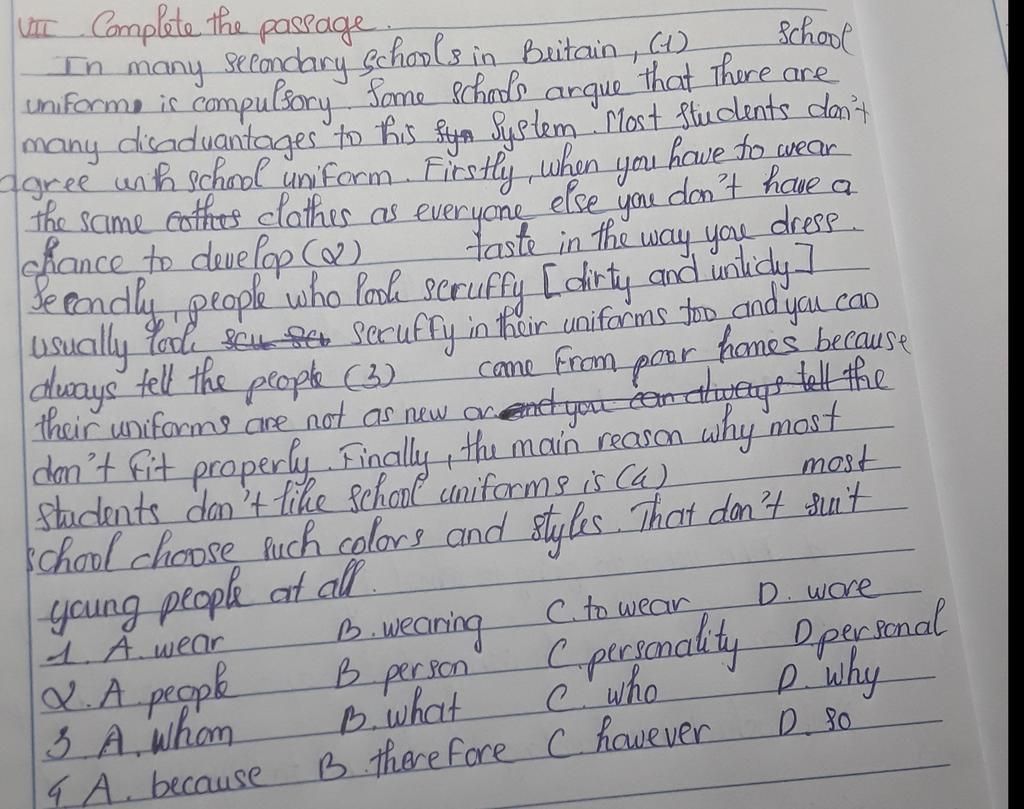 VII. Complete the passage.
In many secondary schools in Britain, (1) school
uniforms is compulsory. Some schools argue that There are
many disadvantages to this syn System. Most students don't
agree with school uniform. Firstly, when you have to wear
the same cothes clothes as everyone else you don't have a
chance to develop (2) taste in the way you dress.
Secondly, people who look scruffy [dirty and untidy]
usually look scu scu scruffy in their uniforms too and you can
always tell the people (3) come from poor homes because
their uniforms are not as new or and you can always tell the
don't fit properly. Finally, the main reason why most
students don't like school uniforms is (4) most
school choose such colors and styles. That don't suit
young people at all.
1. A. wear B. wearing C. to wear D. wore
2. A people B person C. personality D. personal
3 A. whom B. what C. who D. why
4 A. because B. therefore C. however D. so